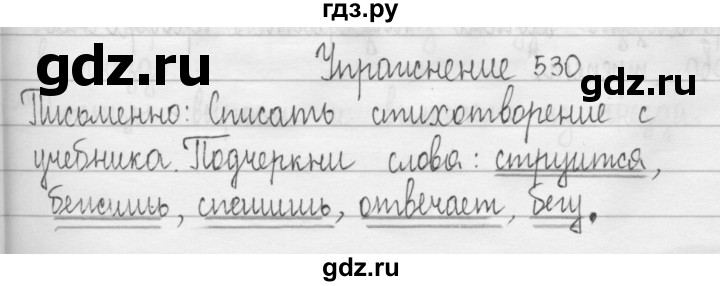 гдз.ру
gdz.ru gdz.ru
Упражнение 530
Письменно: Списать стихотворение с
учебника. Подчеркни слова: струится,
бежишь, спешишь, отвечает, бегу.
gdz.ru gdz.ru
gdz.ru